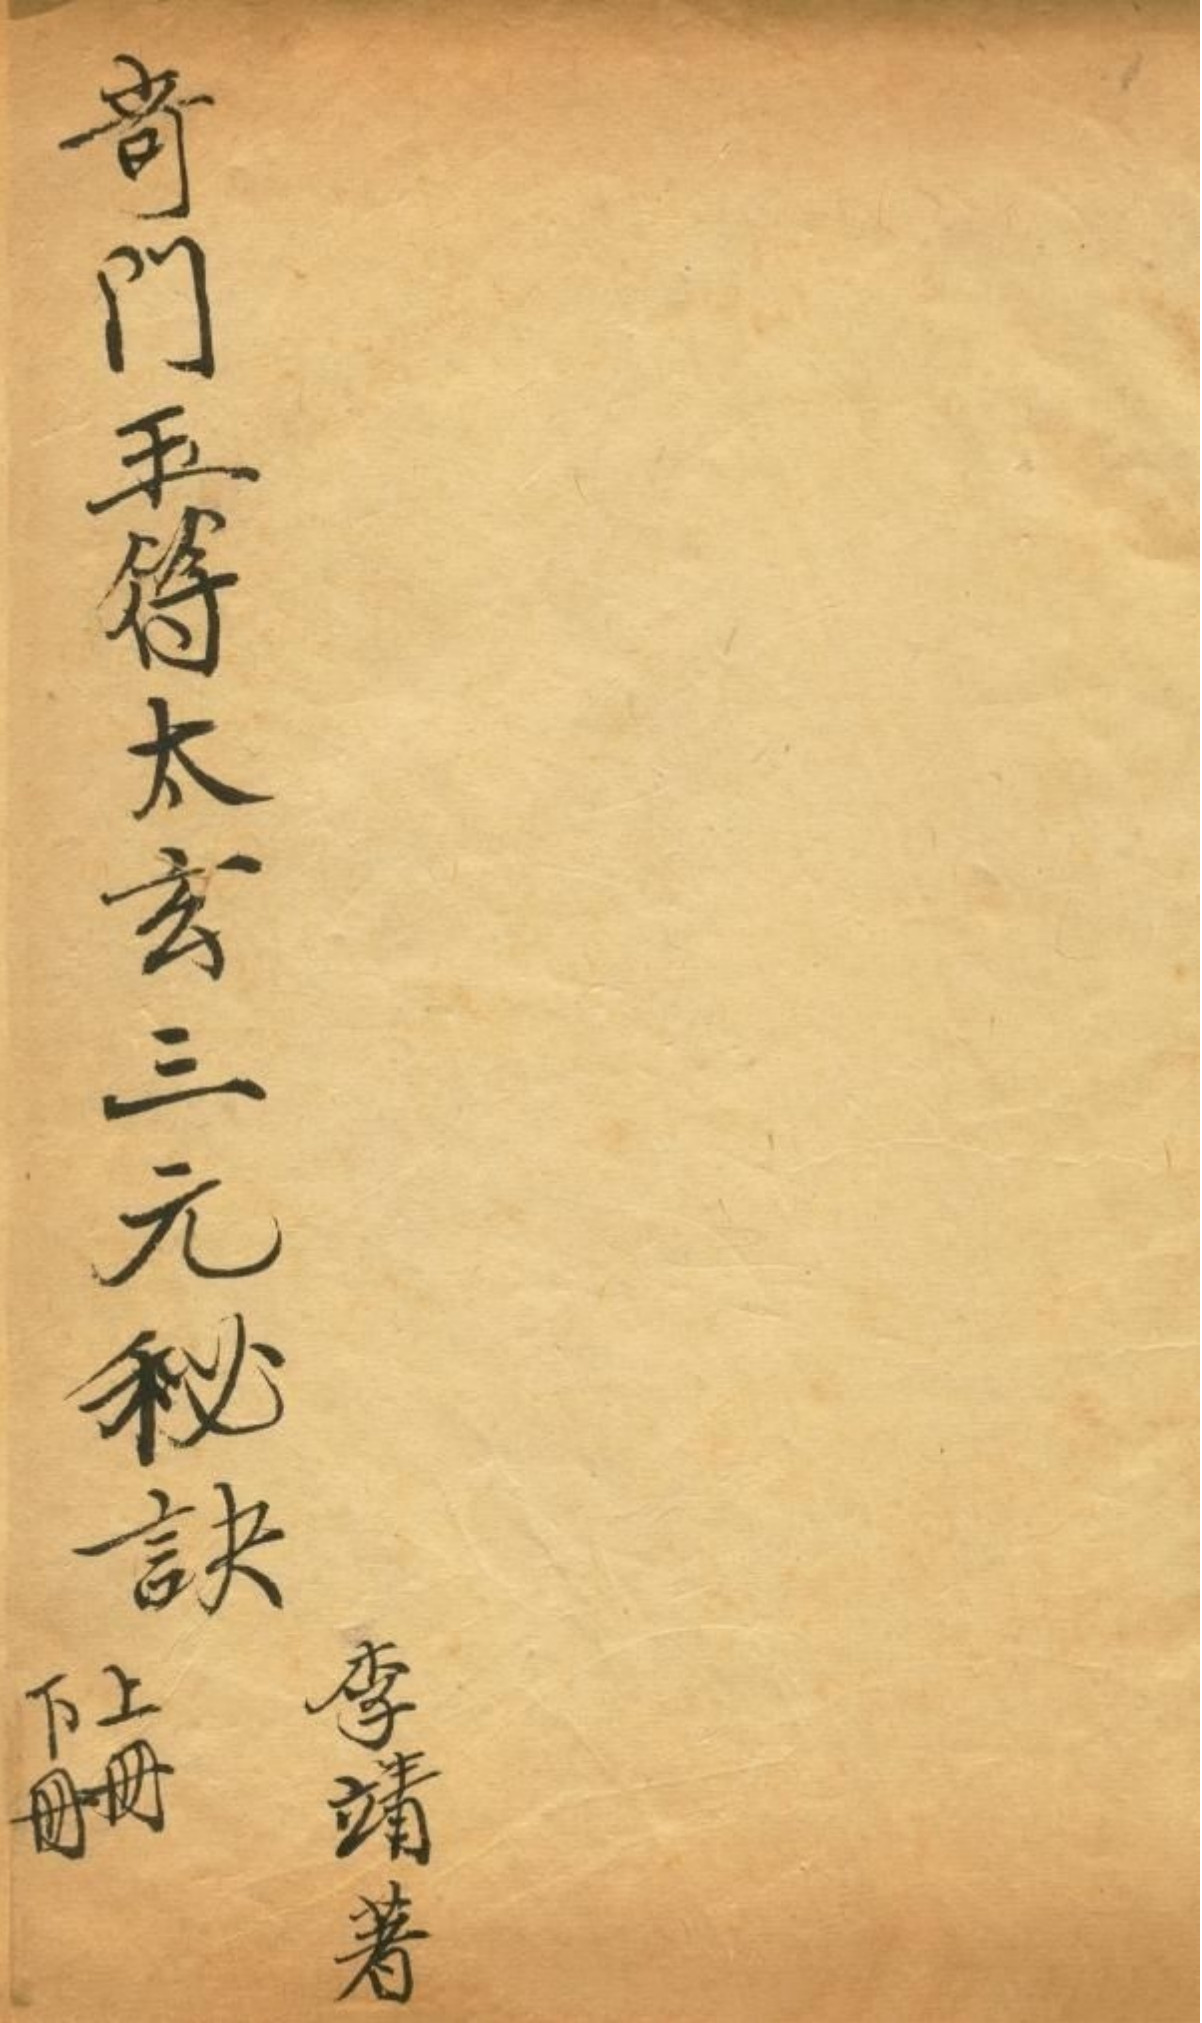 李靖著
奇門玉符太玄三元秘訣
上冊
下冊